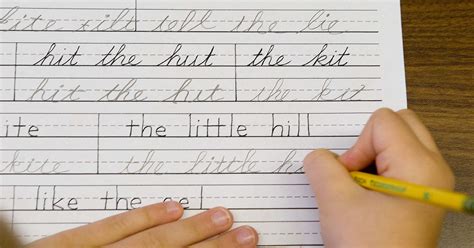 tilt tell the lie
hit the hut the kit
hit the hut the kit
ite the little hill
kite the little h
like the eel